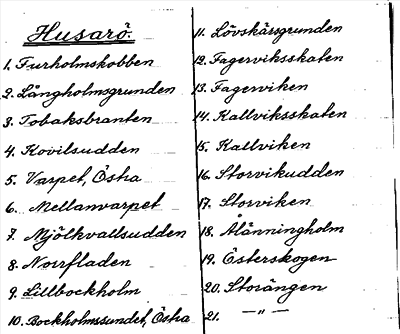 Husarö.
1. Furholmskobben
2. Långholmsgrunden
3. Tobaksbranten
4. Kovilsudden
5. Varpet, Östra
6. Mellanvarpet
7. Mjölkvallsudden
8. Norrfladen
9. Lillbockholm
10. Bockholmssundet, Östra
11. Lövskärsgrunden
12. Fagerviksskaten
13. Fagerviken
14. Kallviksskaten
15. Kallviken
16. Storvikudden
17. Storviken
18. Ålänningholm
19. Österskogen
20. Storängen
21. —"—